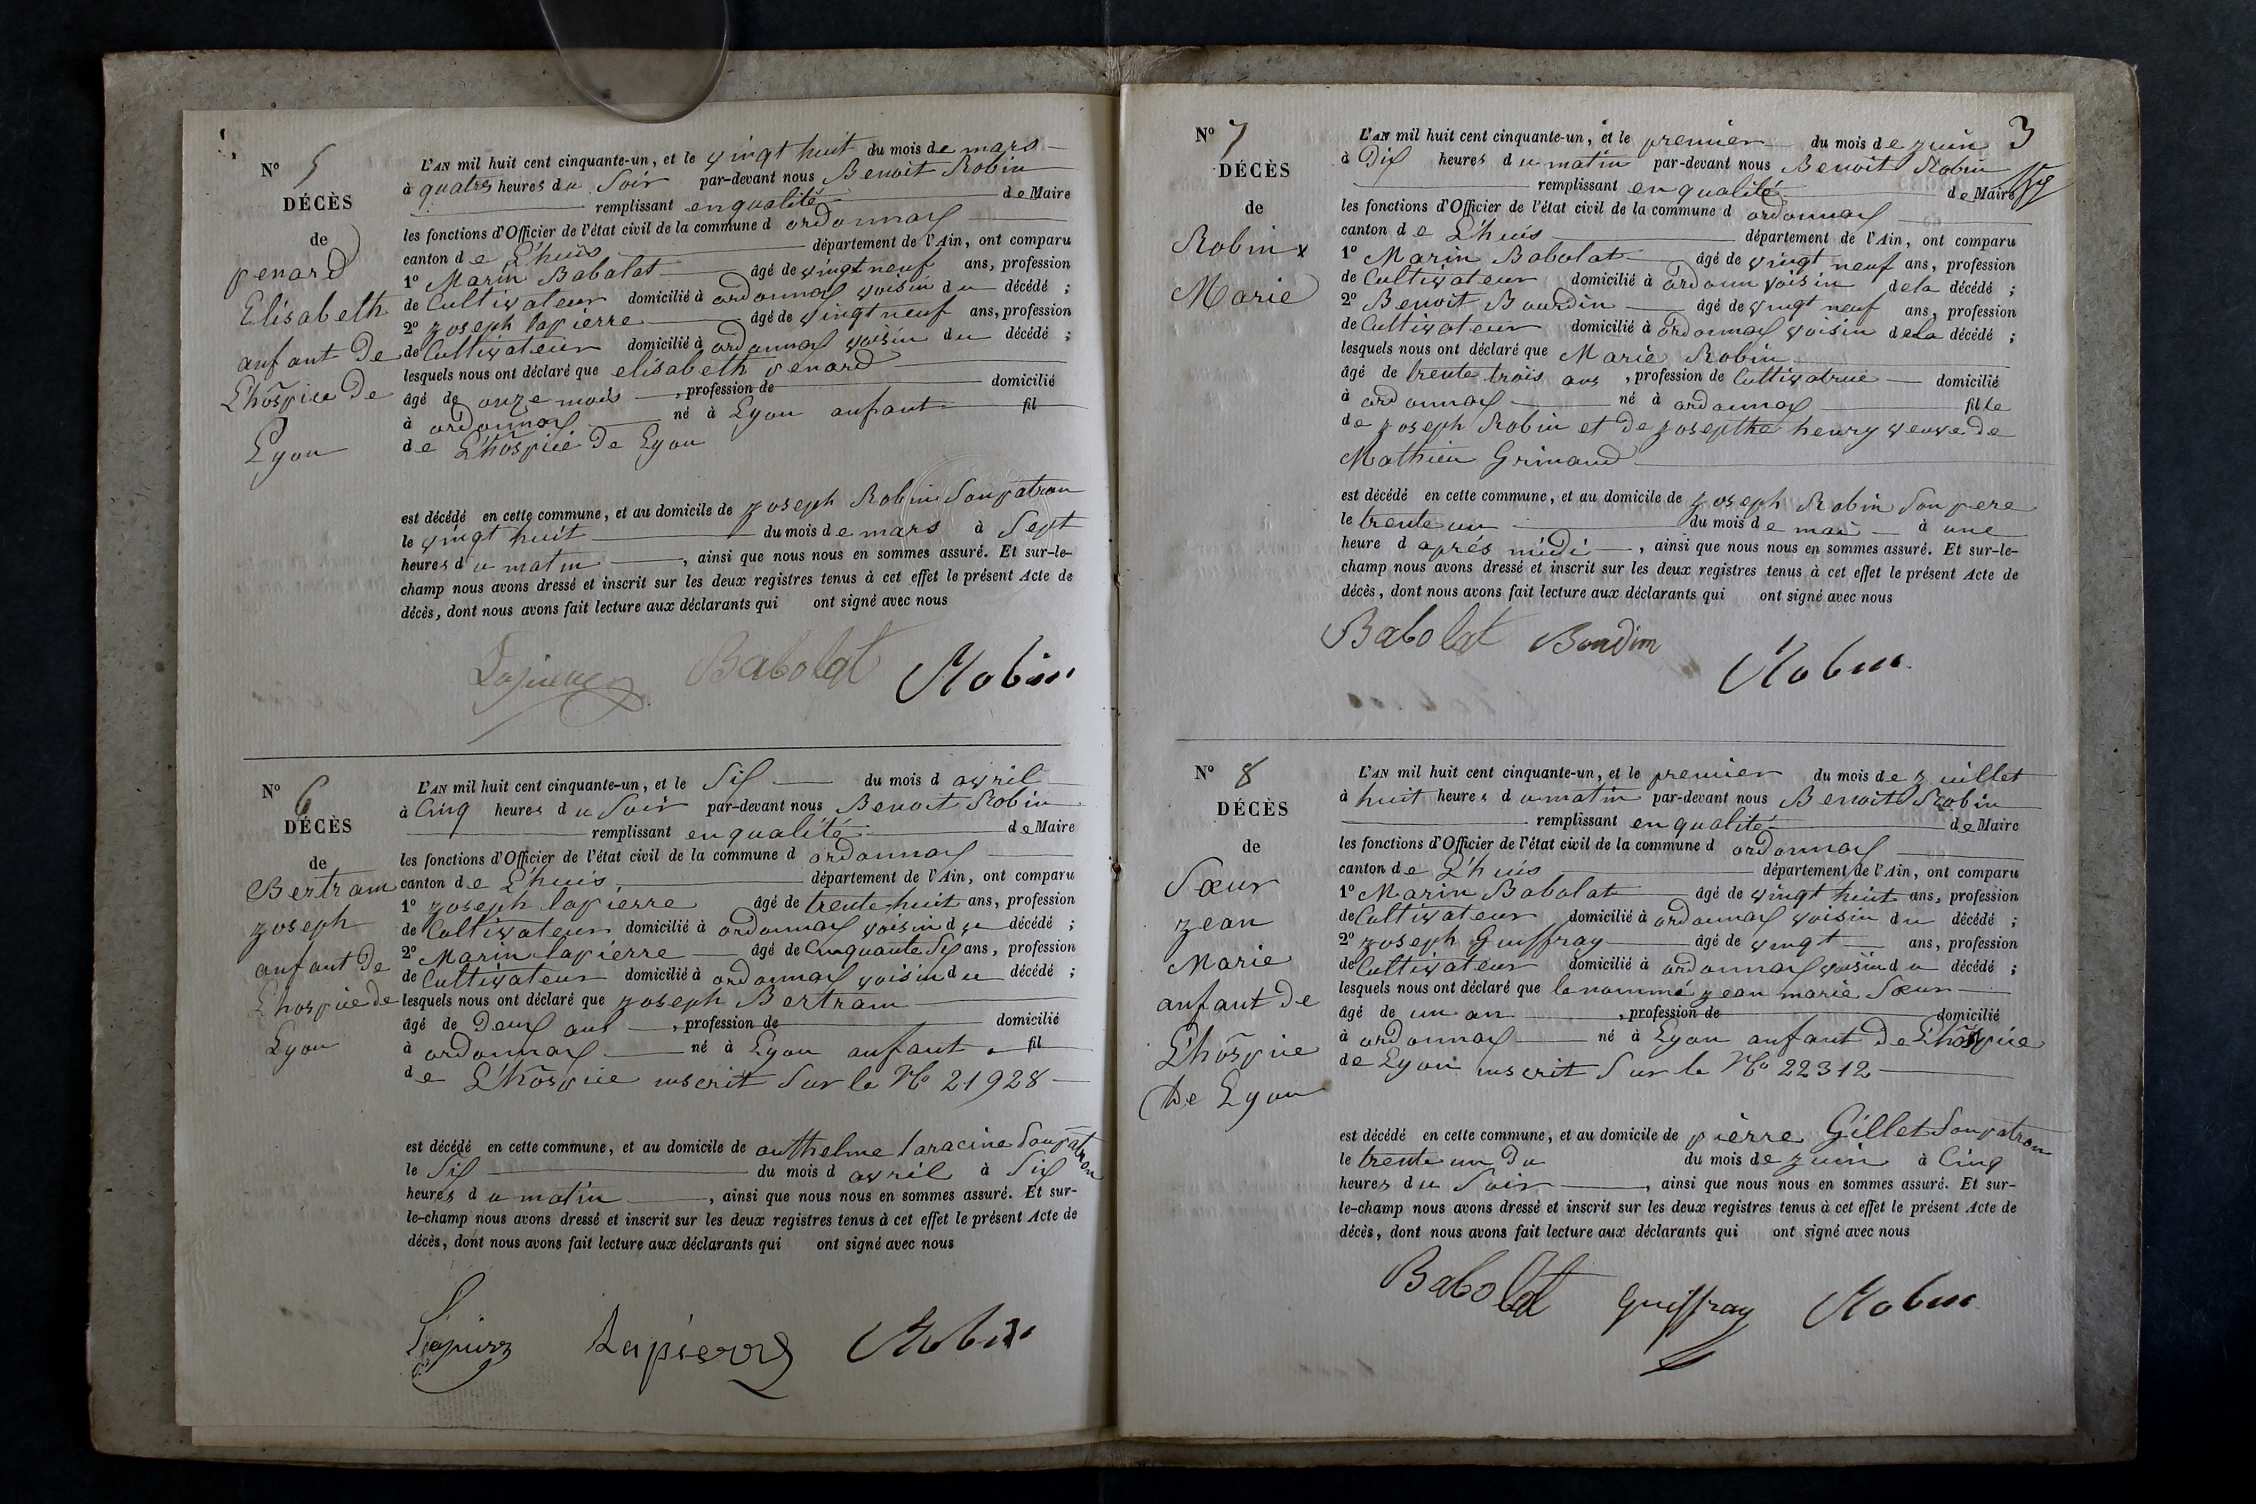 N° 5
DÉCÈS
de
penard
Elisabeth
anfant De
L'hospice De
Lyon
L'AN mil huit cent cinquante-un, et le vingt huit du mois de mars
à quatre heures du Soir par-devant nous Benoit Robin
remplissant en qualité de Maire
les fonctions d'Officier de l'état civil de la commune d ordonnax
canton de L'huis département de l'Ain, ont comparu
1° Marin Babolat âgé de vingt neuf ans, profession
de Cultivateur domicilié à ordonnax voisin du décédé ;
2° Joseph lapierre âgé de vingt neuf ans, profession
de Cultivateur domicilié à ordonnax voisin du décédé ;
lesquels nous ont déclaré que elisabeth penard
âgé de onze mois , profession de domicilié
à ordonnax né à Lyon anfant fil
de L'hospice De Lyon
est décédé en cette commune, et au domicile de Joseph Robin Son patron
le vingt huit du mois de mars à Sept
heures du matin , ainsi que nous nous en sommes assuré. Et sur-le-
champ nous avons dressé et inscrit sur les deux registres tenus à cet effet le présent Acte de
décès, dont nous avons fait lecture aux déclarants qui ont signé avec nous
Lapierre Babolat Robin
N° 6
DÉCÈS
de
Bertram
Joseph
anfant De
L'hospice de
Lyon
L'AN mil huit cent cinquante-un, et le Six du mois d avril
à Cinq heures du Soir par-devant nous Benoit Robin
remplissant en qualité de Maire
les fonctions d'Officier de l'état civil de la commune d ordonnax
canton de L'huis département de l'Ain, ont comparu
1° Joseph lapierre âgé de trente huit ans, profession
de Cultivateur domicilié à ordonnax voisin du décédé ;
2° Marin lapierre âgé de Cinquante Six ans, profession
de Cultivateur domicilié à ordonnax voisin du décédé ;
lesquels nous ont déclaré que Joseph Bertram
âgé de Deux ans , profession de domicilié
à ordonnax né à Lyon anfant fil
de L'hospice inscrit Sur le N° 21928
est décédé en cette commune, et au domicile de anthelme laracine Son patron
le Six du mois d avril à Six
heures du matin , ainsi que nous nous en sommes assuré. Et sur-
le-champ nous avons dressé et inscrit sur les deux registres tenus à cet effet le présent Acte de
décès, dont nous avons fait lecture aux déclarants qui ont signé avec nous
Lapierre Lapierre Robin
3
N° 7
DÉCÈS
de
Robin
Marie
L'AN mil huit cent cinquante-un, et le premier du mois de Juin
à Dix heures du matin par-devant nous Benoit Robin
remplissant en qualité de Maire
les fonctions d'Officier de l'état civil de la commune d ordonnax
canton de L'huis département de l'Ain, ont comparu
1° Marin Babolat âgé de vingt neuf ans, profession
de Cultivateur domicilié à ordonn voisin de la décédé ;
2° Benoit Bourdin âgé de vingt neuf ans, profession
de Cultivateur domicilié à ordonnax voisin de la décédé ;
lesquels nous ont déclaré que Marie Robin
âgé de trente trois ans , profession de Cultivatrice domicilié
à ordonnax né à ordonnax fille
de Joseph Robin et de Josepthe henry veuve de
Mathieu Grimand
est décédé en cette commune, et au domicile de Joseph Robin Son pere
le trente un du mois de mai à une
heure d aprés midi , ainsi que nous nous en sommes assuré. Et sur-le-
champ nous avons dressé et inscrit sur les deux registres tenus à cet effet le présent Acte de
décès, dont nous avons fait lecture aux déclarants qui ont signé avec nous
Babolat Bourdin
Robin
N° 8
DÉCÈS
de
Sœur
Jean
Marie
anfant De
L'hospice
De Lyon
L'AN mil huit cent cinquante-un, et le premier du mois de Juillet
à huit heures du matin par-devant nous Benoit Robin
remplissant en qualité de Maire
les fonctions d'Officier de l'état civil de la commune d ordonnax
canton de L'huis département de l'Ain, ont comparu
1° Marin Babolat âgé de vingt huit ans, profession
de Cultivateur domicilié à ordonnax voisin du décédé ;
2° Joseph Guiffray âgé de vingt ans, profession
de Cultivateur domicilié à ordonnax voisin du décédé ;
lesquels nous ont déclaré que le nommé Jean marie Sœur
âgé de un an , profession de domicilié
à ordonnax né à Lyon anfant De L'hospice
de Lyon inscrit Sur le N° 22312
est décédé en cette commune, et au domicile de pierre Gillet Son patron
le trente un Du du mois de Juin à Cinq
heures du Soir , ainsi que nous nous en sommes assuré. Et sur-
le-champ nous avons dressé et inscrit sur les deux registres tenus à cet effet le présent Acte de
décès, dont nous avons fait lecture aux déclarants qui ont signé avec nous
Babolat Guiffray Robin